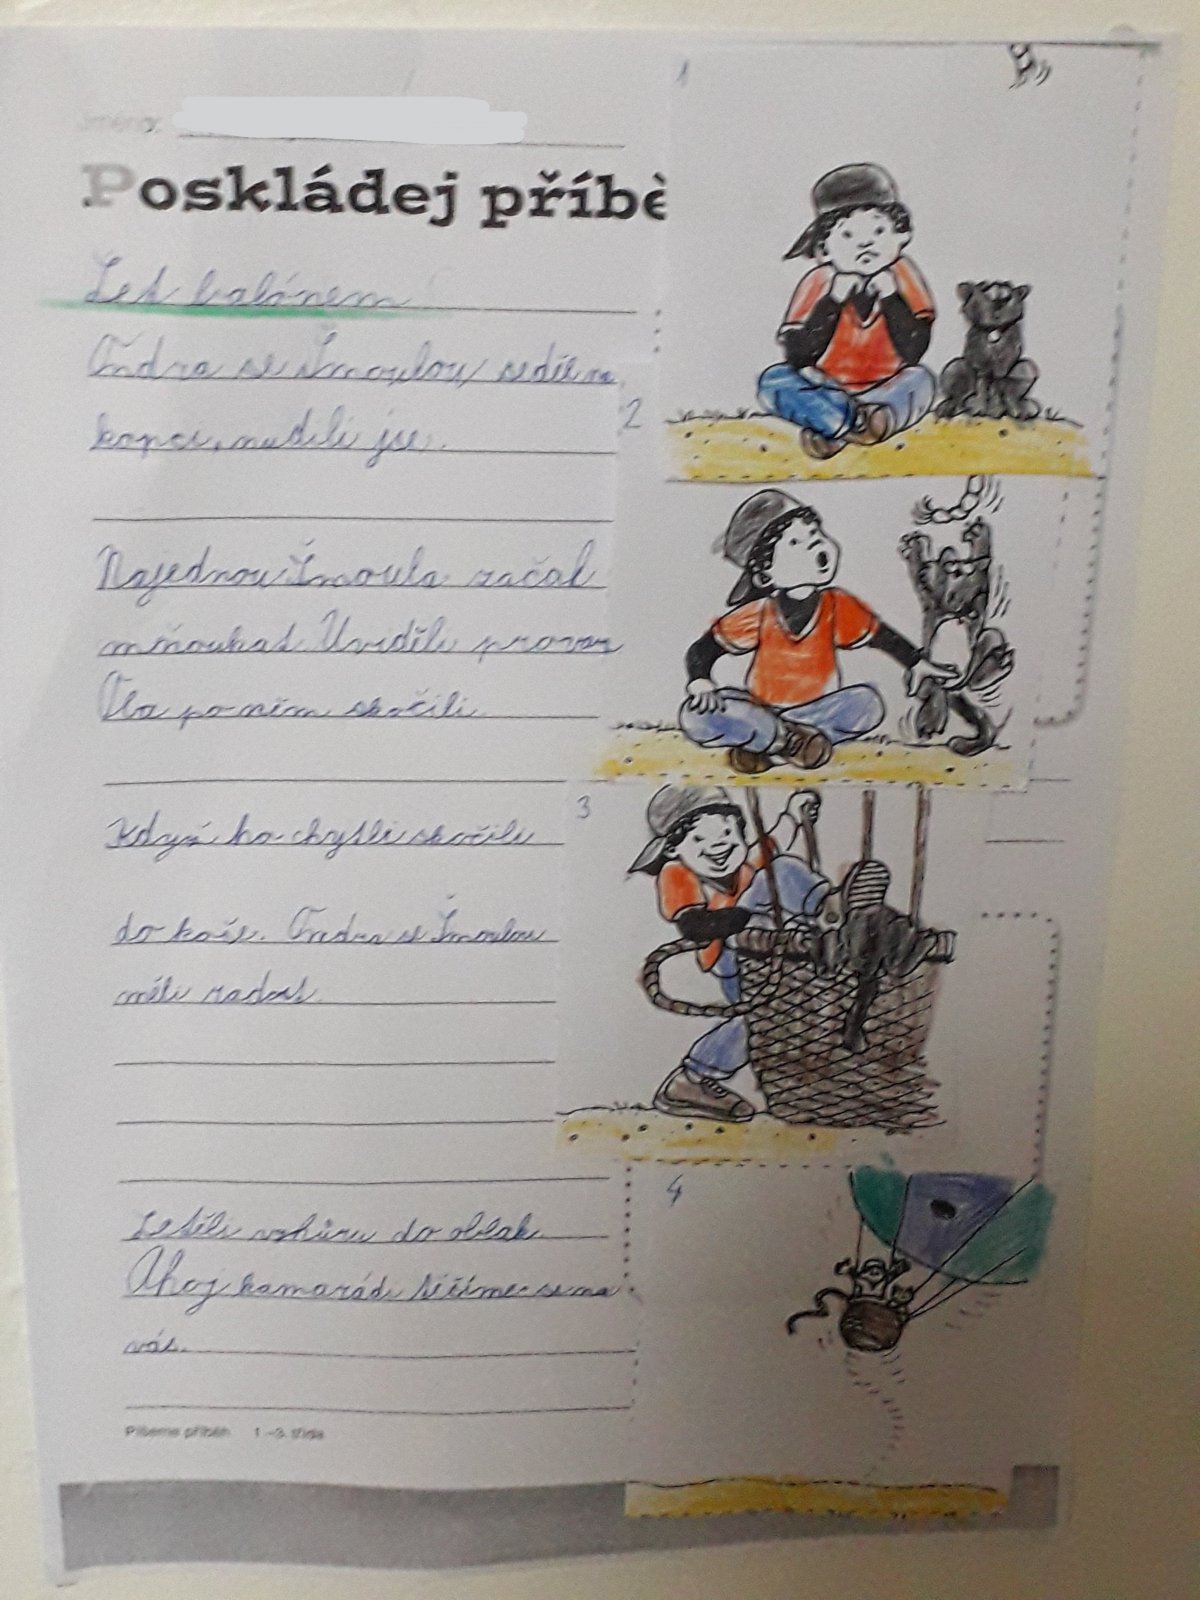 Jméno:
Poskládej příbě
1
Let balónem
Ondra se Šmoulou seděli na
kopci, nudili jse.
2
Najednou Šmoula začal
mňoukat Uviděli provaz
A po něm skočili.
3
Když ho chytli skočili
do koše. Ondra se Šmoulou
měli radost.
4
Letěli vzhůru do oblak
Ahoj kamarádi těšíme se na
vás.
Píšeme příběh 1.-3. třída